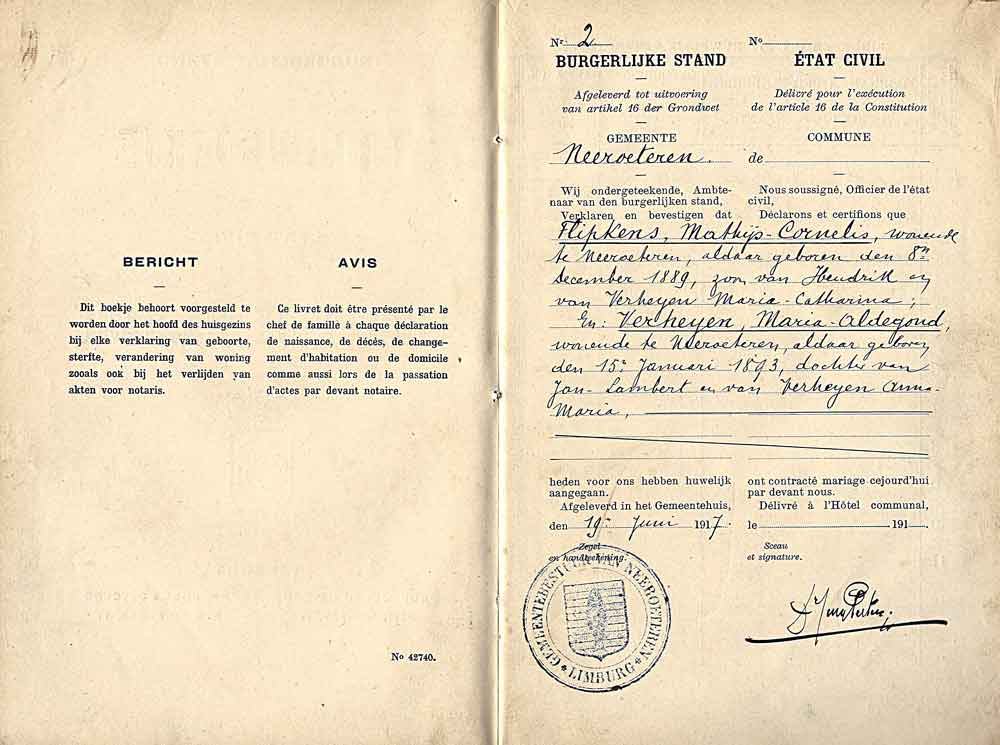 BERICHT
Dit boekje behoort voorgesteld te
worden door het hoofd des huisgezins
bij elke verklaring van geboorte,
sterfte, verandering van woning
zooals ook bij het verlijden van
akten voor notaris.
AVIS
Ce livret doit être présenté par le
chef de famille à chaque déclaration
de naissance, de décès, de change-
ment d'habitation ou de domicile
comme aussi lors de la passation
d'actes par devant notaire.
No 42740.
Nr 2
BURGERLIJKE STAND
Afgeleverd tot uitvoering
van artikel 16 der Grondwet
GEMEENTE
Neeroeteren.
Wij ondergeteekende, Ambte-
naar van den burgerlijken stand,
Verklaren en bevestigen dat
No
ÉTAT CIVIL
Délivré pour l'exécution
de l'article 16 de la Constitution
COMMUNE
de
Nous soussigné, Officier de l'état
civil,
Déclarons et certifions que
Flipkens, Mathijs-Cornelis, wonende
te Neeroeteren, aldaar geboren den 8n
december 1889, zoon van Hendrik en
van Verheyen Maria-Catharina;
En: Verheyen, Maria-Aldegond,
wonende te Neeroeteren, aldaar geboren
den 15n Januari 1893, dochter van
Jan-Lambert en van Verheyen Anna-
Maria,
heden voor ons hebben huwelijk
aangegaan.
Afgeleverd in het Gemeentehuis,
den 19n Juni 1917.
Zegel
en handteekening.
ont contracté mariage cejourd'hui
par devant nous.
Délivré à l'Hôtel communal,
le 191 .
Sceau
et signature.
GEMEENTEBESTUUR VAN NEEROETEREN
* LIMBURG *